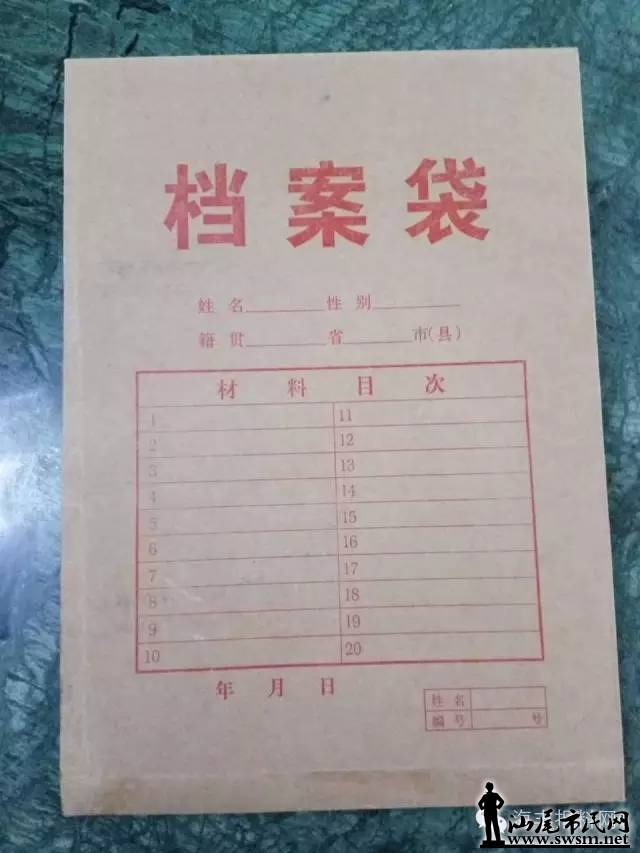 档案袋
姓名________性别________
籍贯________省________市(县)
材料目次
1 11
2 12
3 13
4 14
5 15
6 16
7 17
8 18
9 19
10 20
年 月 日
姓名
编号 号
汕尾市民网
www.swsm.net